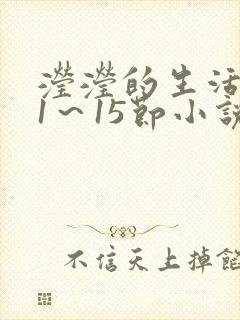 瀅瀅的生活
1~15節小說
不信天上掉餡